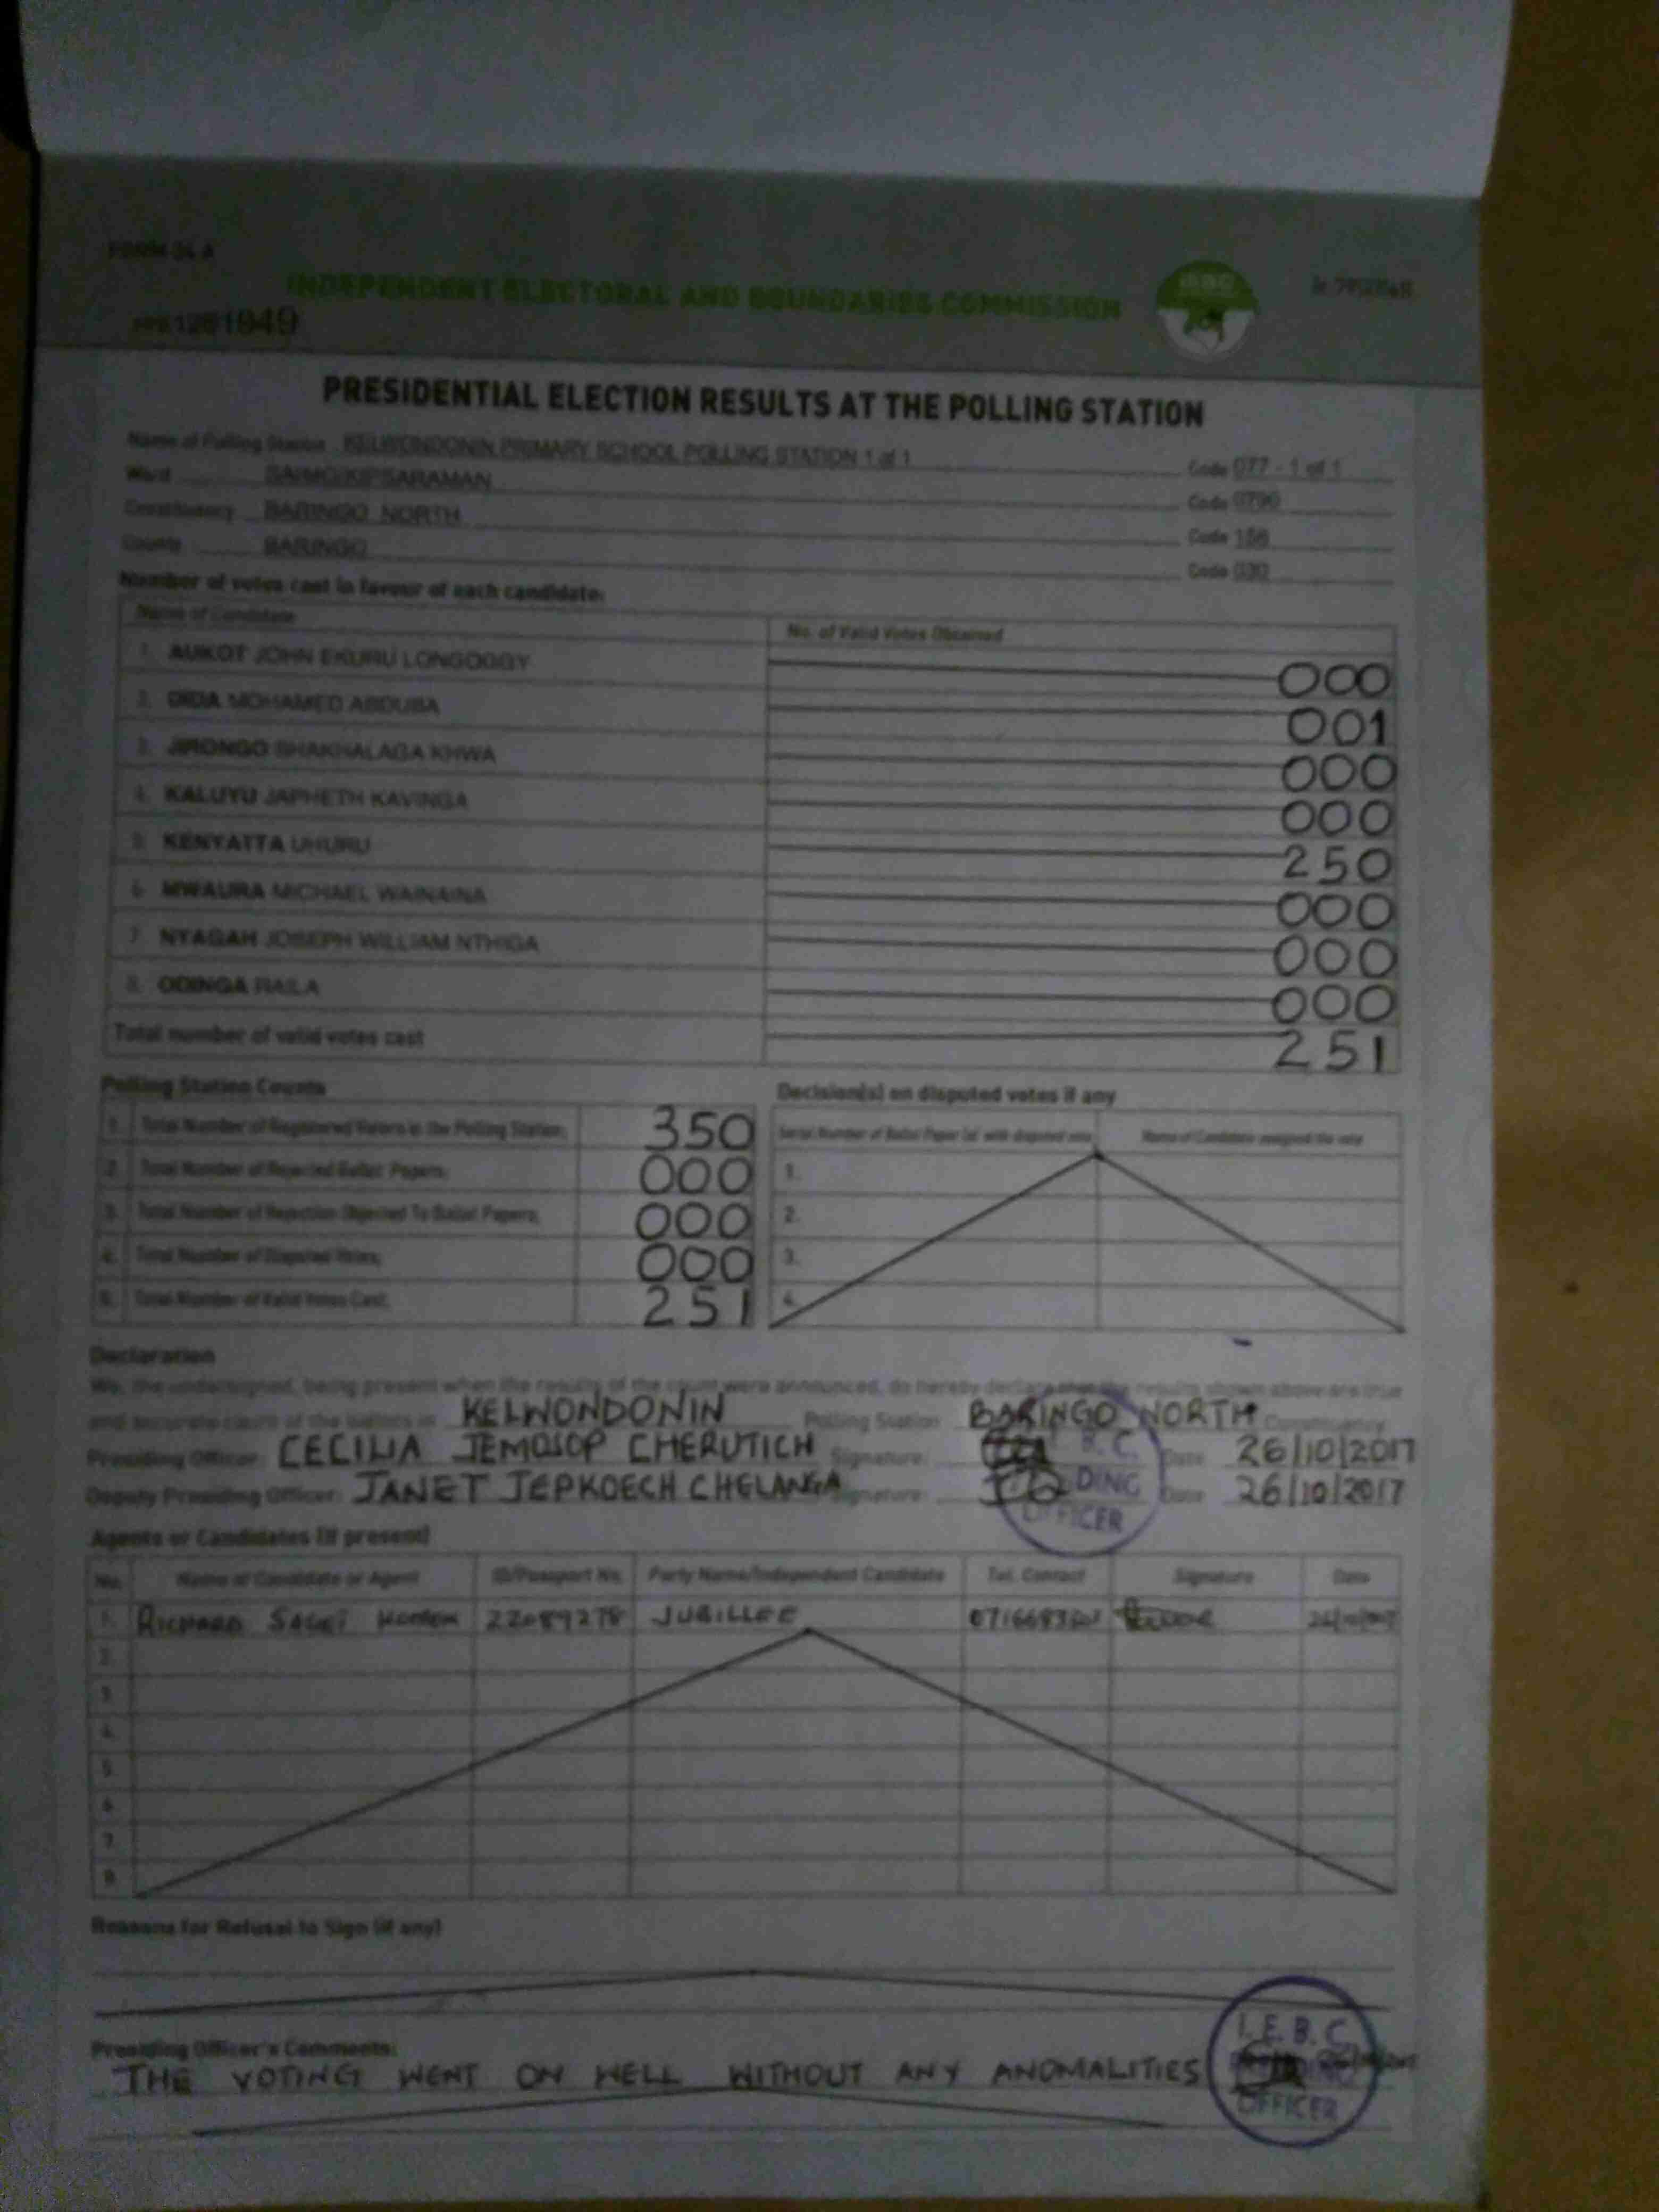 FORM 34 A
INDEPENDENT ELECTORAL AND BOUNDARIES COMMISSION
PRESIDENTIAL ELECTION RESULTS AT THE POLLING STATION
Name of Polling Station KELWONDONIN PRIMARY SCHOOL POLLING STATION 1 of 1 Code 077 - 1 of 1
Ward SAIMO/KIPSARAMAN Code 0790
Constituency BARINGO NORTH Code 158
County BARINGO Code 030
Number of votes cast in favour of each candidate:
Name of Candidate No. of Valid Votes Obtained
1. AUKOT JOHN EKURU LONGOGGY 000
2. DIDA MOHAMED ABDUBA 001
3. JIRONGO SHAKHALAGA KHWA 000
4. KALUYU JAPHETH KAVINGA 000
5. KENYATTA UHURU 250
6. MWAURA MICHAEL WAINAINA 000
7. NYAGAH JOSEPH WILLIAM NTHIGA 000
8. ODINGA RAILA 000
Total number of valid votes cast 251
Polling Station Counts
1. Total Number of Registered Voters in the Polling Station; 350
2. Total Number of Rejected Ballot Papers; 000
3. Total Number of Rejection Objected To Ballot Papers; 000
4. Total Number of Disputed Votes; 000
5. Total Number of Valid Votes Cast; 251
Decision(s) on disputed votes if any
Serial Number of Ballot Paper (s) with disputed vote Name of Candidate assigned the vote
1.
2.
3.
4.
Declaration
We, the undersigned, being present when the results of the count were announced, do hereby declare that the results shown above are true
and accurate count of the ballots in KELWONDONIN Polling Station BARINGO NORTH Constituency
Presiding Officer: CECILIA JEMOSOP CHERUTICH Signature: Date 26/10/2017
Deputy Presiding Officer: JANET JEPKOECH CHELANGA Signature: Date 26/10/2017
OFFICER
Agents or Candidates (if present)
No. Name of Candidate or Agent ID/Passport No. Party Name/Independent Candidate Tel. Contact Signature Date
1. RICHARD 22089278 JUBILLEE
2.
3.
4.
5.
6.
7.
8.
Reasons for Refusal to Sign (if any)
Presiding Officer's Comments:
THE VOTING WENT ON WELL WITHOUT ANY ANOMALITIES
I.E.B.C
OFFICER